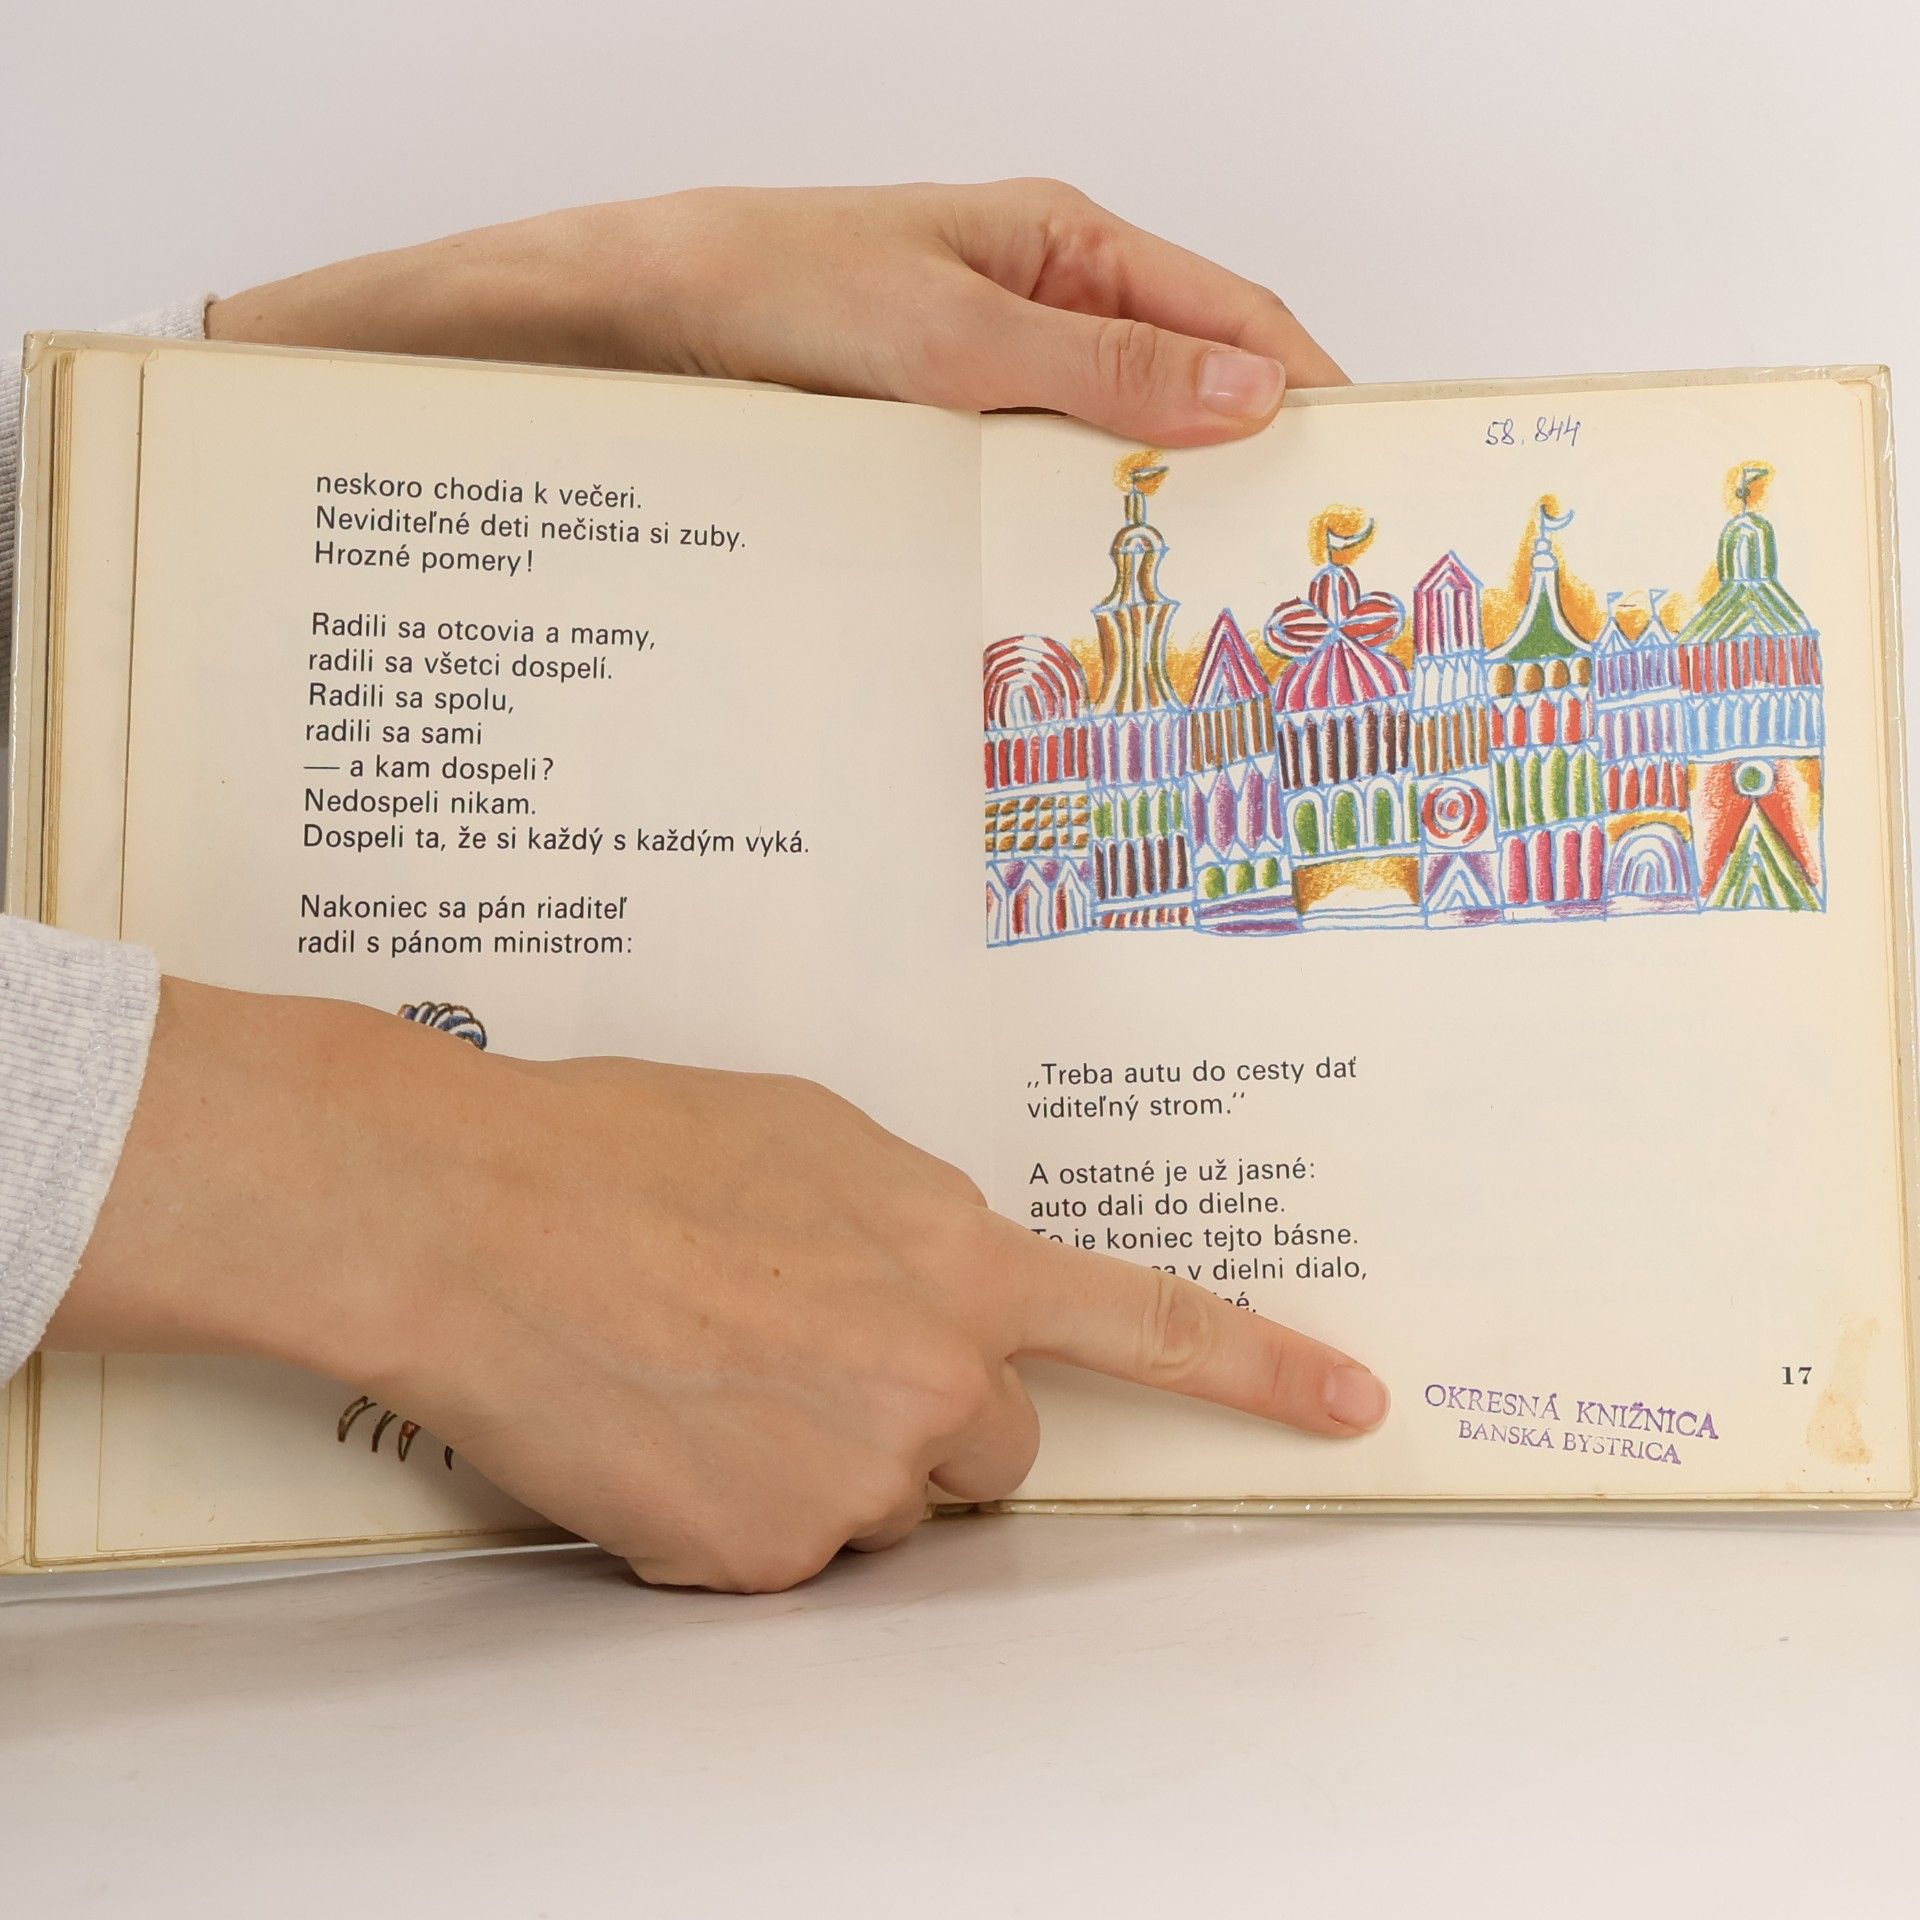 neskoro chodia k večeri.
Neviditeľné deti nečistia si zuby.
Hrozné pomery!
Radili sa otcovia a mamy,
radili sa všetci dospelí.
Radili sa spolu,
radili sa sami
— a kam dospeli?
Nedospeli nikam.
Dospeli ta, že si každý s každým vyká.
Nakoniec sa pán riaditeľ
radil s pánom ministrom:
58.844
„Treba autu do cesty dať
viditeľný strom.“
A ostatné je už jasné:
auto dali do dielne.
je koniec tejto básne.
v dielni dialo,
17
OKRESNÁ KNIŽNICA
BANSKÁ BYSTRICA